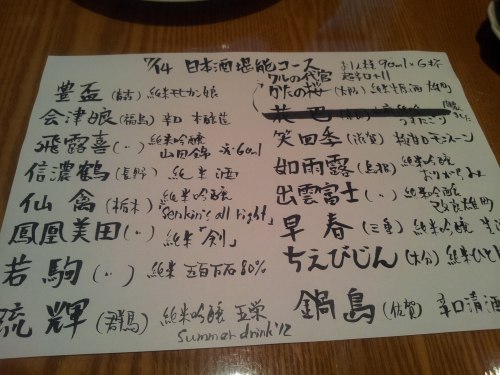 7/14 日本酒堪能コース お1人様 90ml×6杯
豊盃(青森)純米モヒカン娘
会津娘(福島)辛口 本醸造
飛露喜(〃)純米吟醸 山田錦
信濃鶴(長野)純米酒
仙禽(栃木)純米吟醸 "Senkin's all right"
鳳凰美田(〃)純米「剣」
若駒(〃)純米 五百万石80%
流輝(群馬)純米吟醸 玉栄 Summer drink'12
ワルの代官 超辛口+11
(大分)純米吟醸 雄町
笑四季(滋賀)モンスーン
如雨露(長野)純米吟醸
出雲富士(〃)純米吟醸 改良雄町
早春(三重)純米吟醸
ちえびじん(大分)純米
鍋島(佐賀)辛口清酒